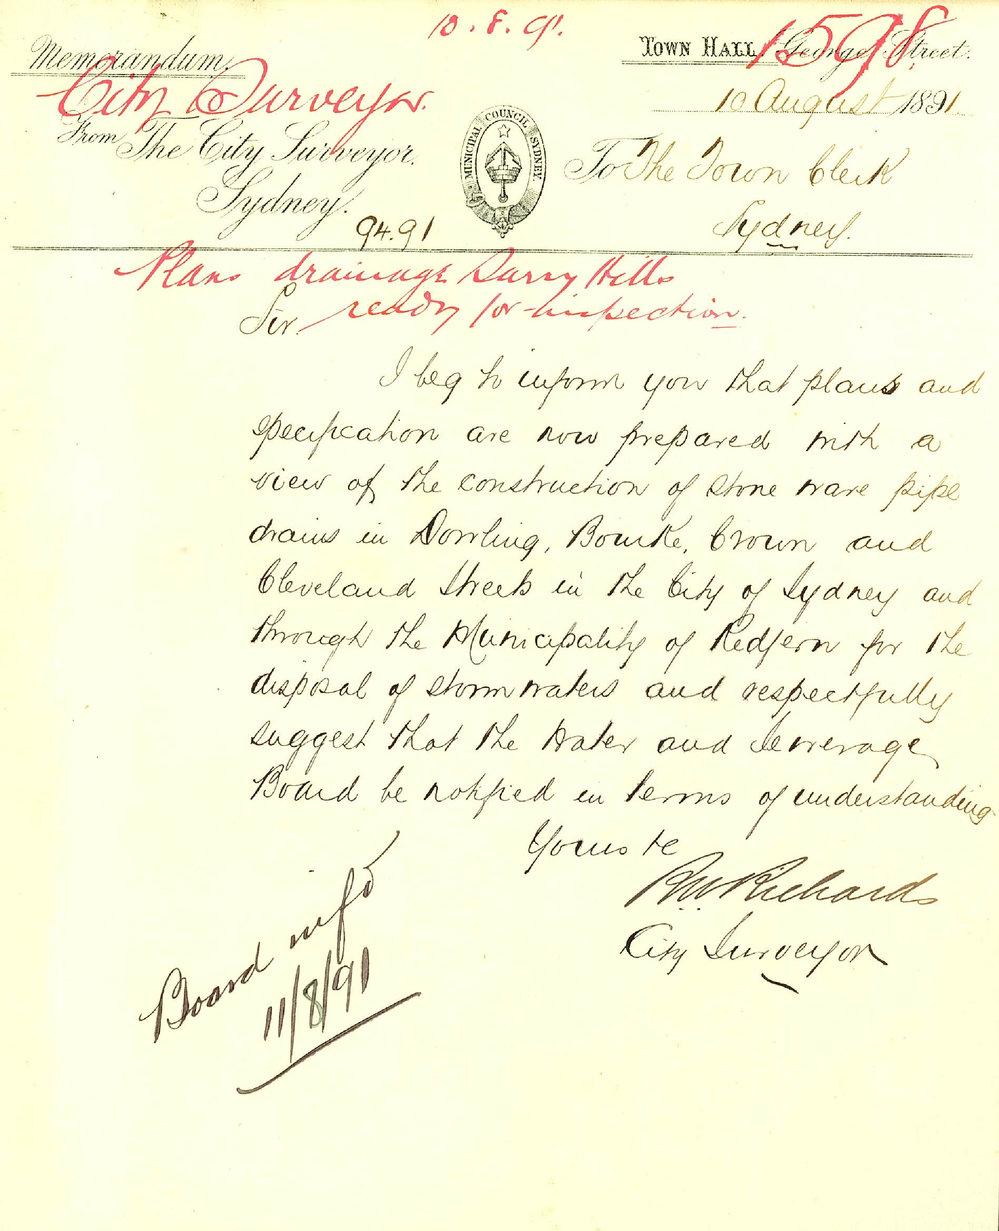 10.8.91.
1598.
Memorandum.
TOWN HALL, George Street.
City Surveyor.
10 August 1891
From The City Surveyor,
Sydney.
MUNICIPAL COUNCIL SYDNEY.
To The Town Clerk
Sydney.
94.91
Plans drainage Surry Hills
ready for inspection.
Sir.
I beg to inform you that plans and
specification are now prepared with a
view of the construction of stone ware pipe
drains in Dowling, Bourke, Crown and
Cleveland Streets in the City of Sydney and
through the Municipality of Redfern for the
disposal of storm waters and respectfully
suggest that the Water and Sewerage
Board be notified in terms of understanding
Yours &c
RW Richards
City Surveyor
Board infd
11/8/91